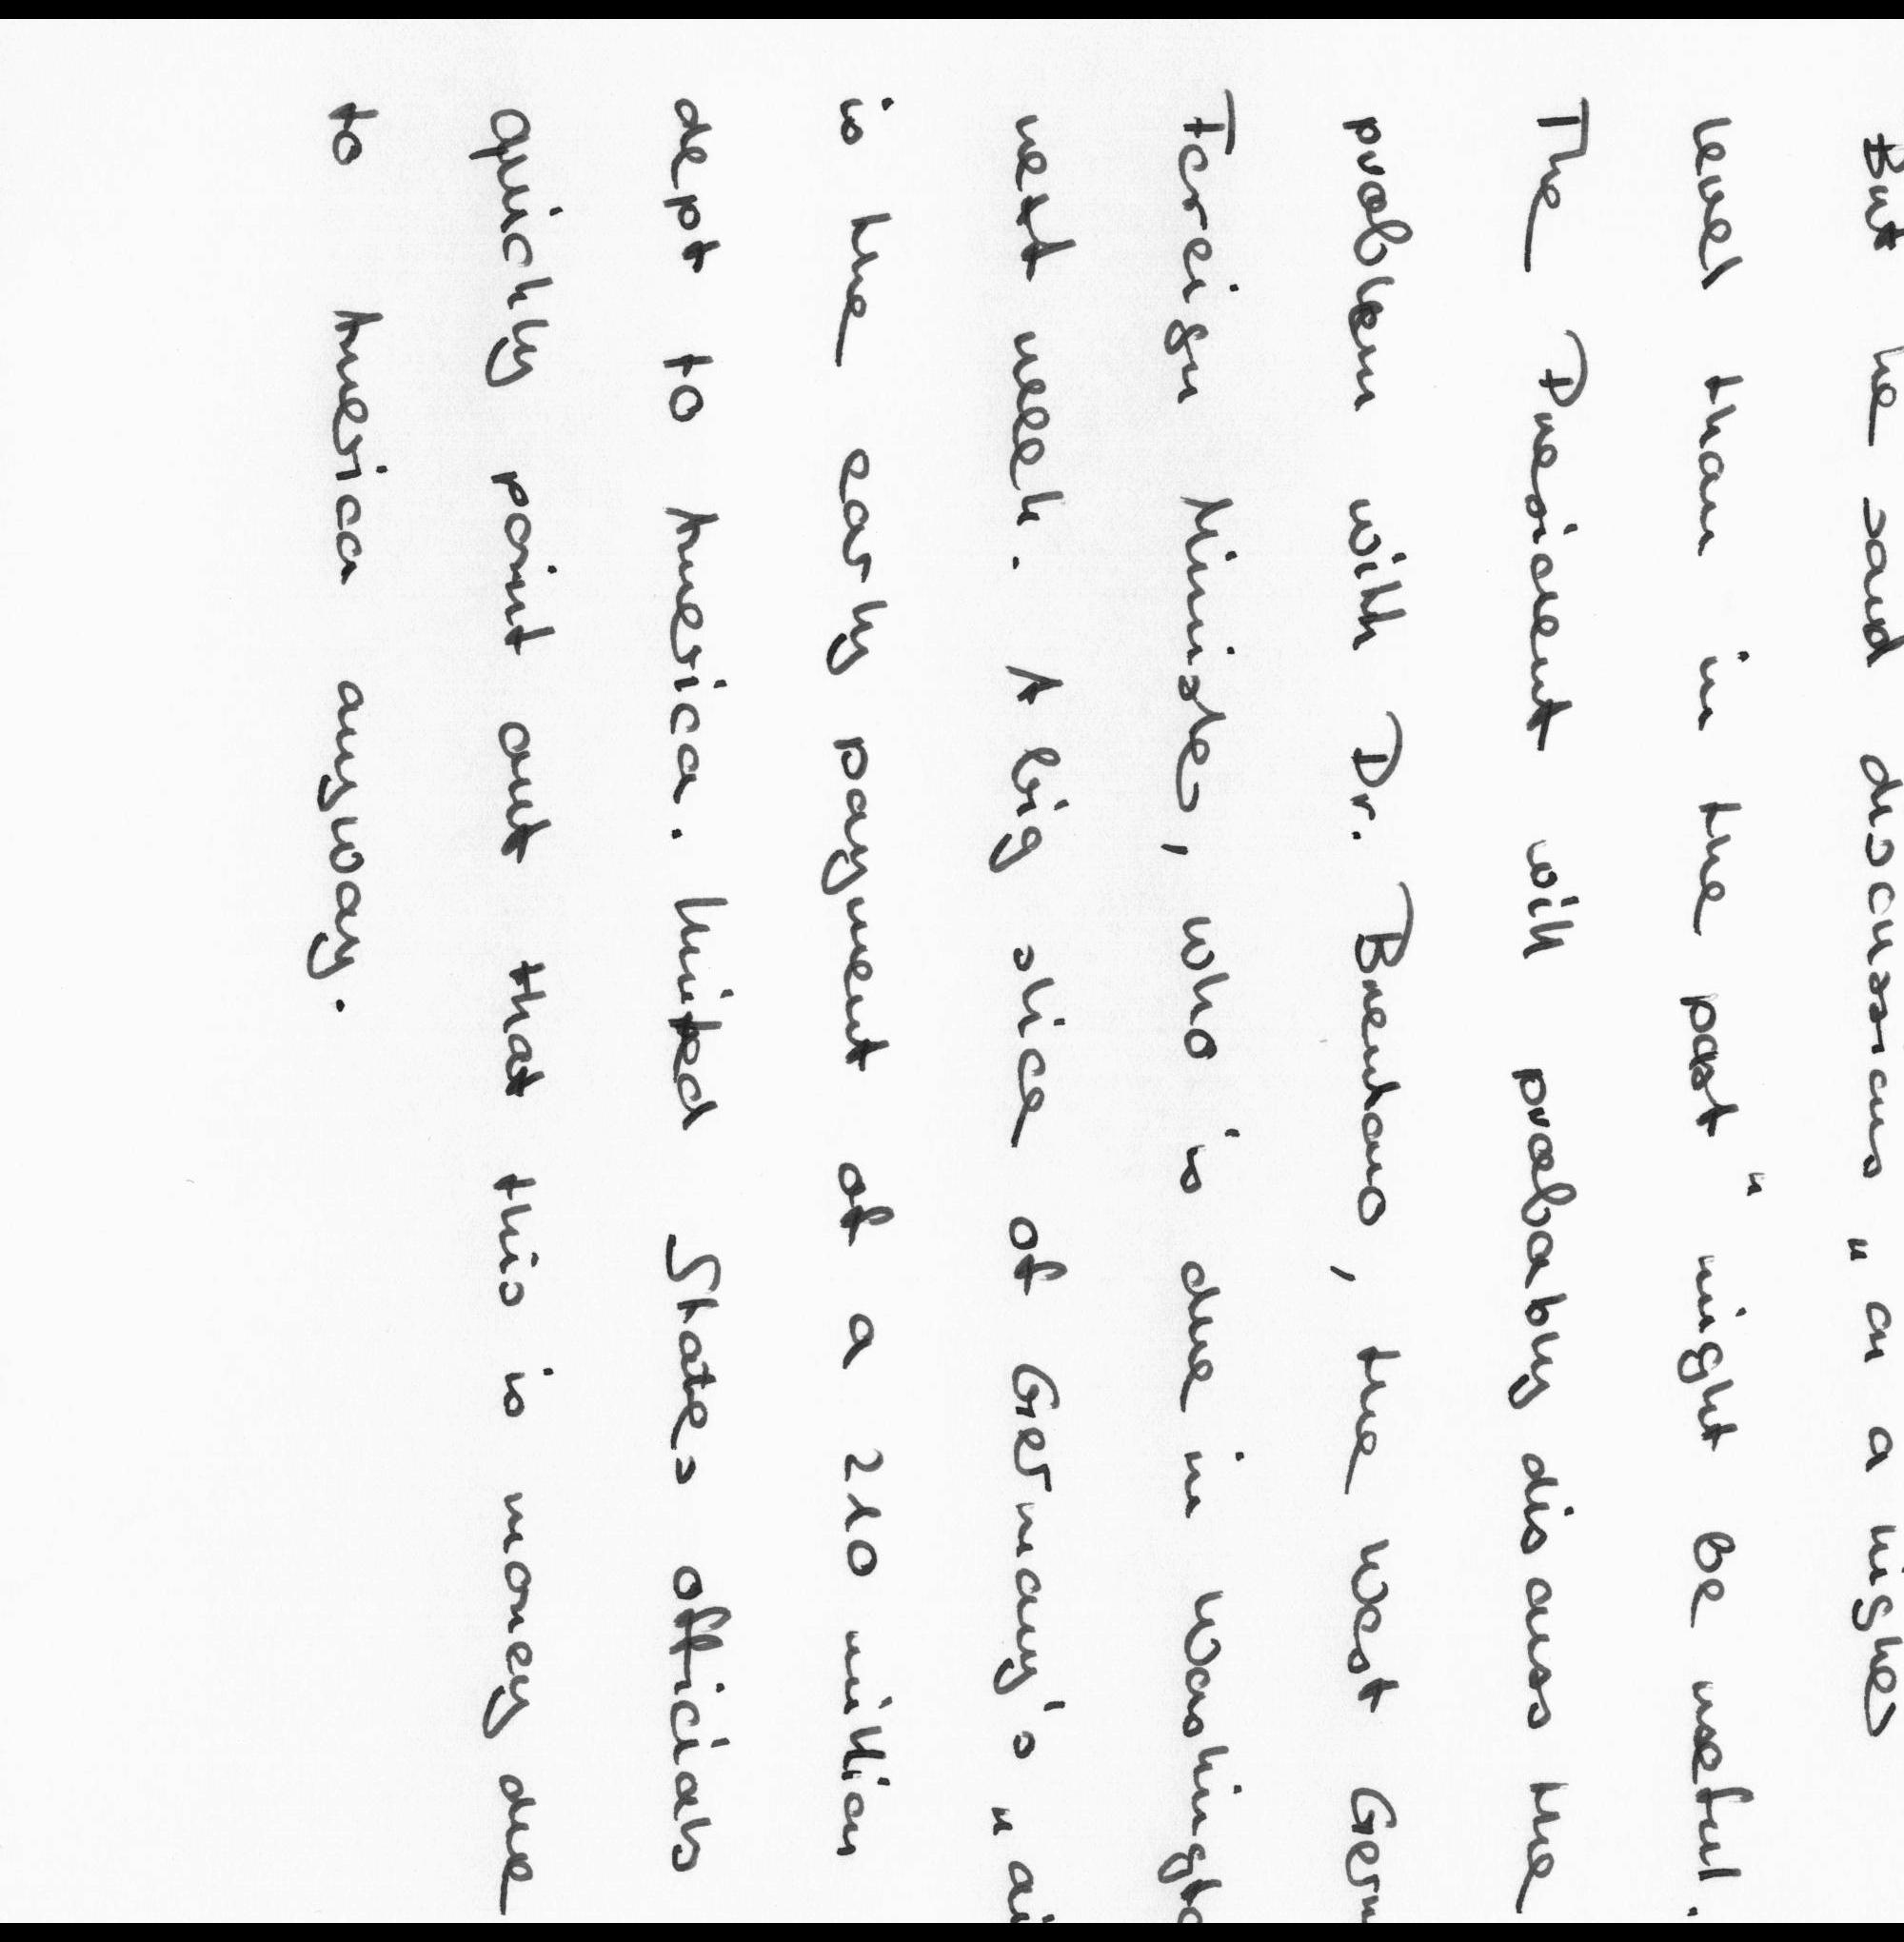 But he said discussions "on a higher
level than in the past" might be useful.
The President will probably discuss the
problem with Dr. Brentano, the West Germ
Foreign Minister, who is due in Washingto
next week. A big slice of Germany's "ai
is the early payment of a 210 million
dept to America. United States officials
quickly point out that this is money due
to America anyway.